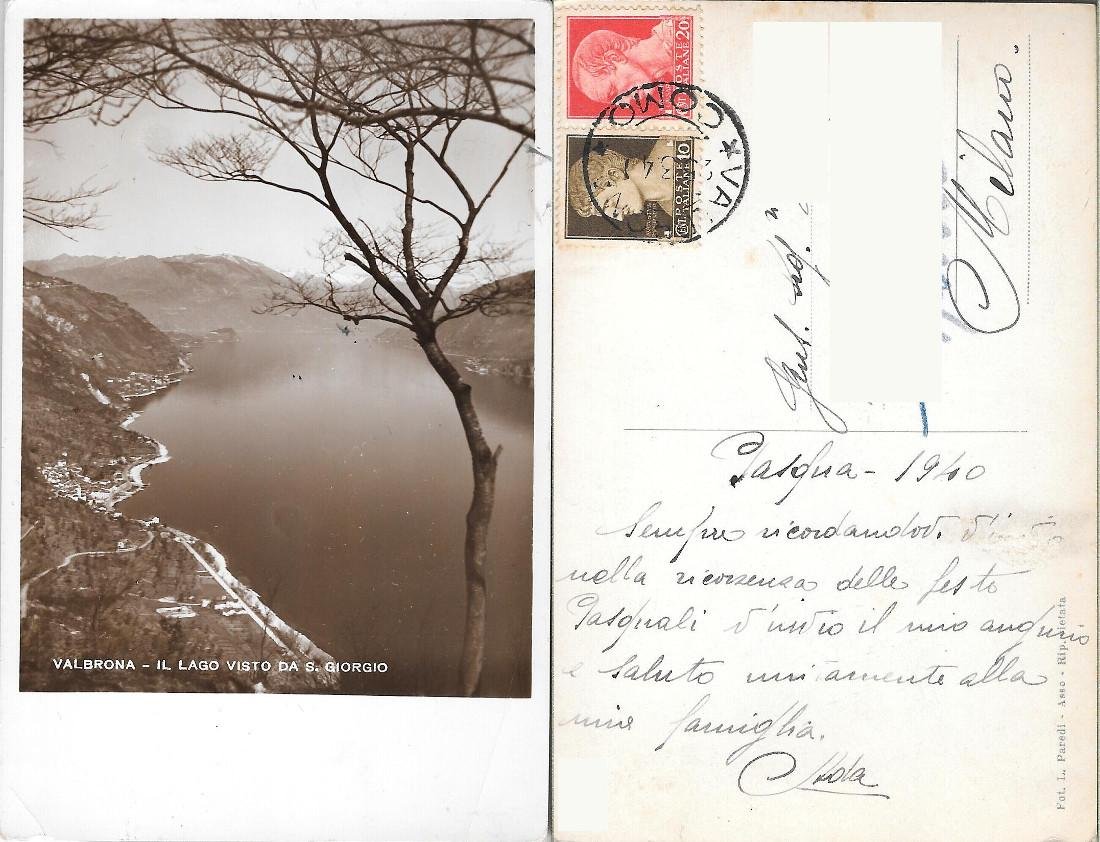 VALBRONA - IL LAGO VISTO DA S. GIORGIO
POSTE
ITALIANE
20
POSTE
ITALIANE
10
★ VA
COMO ★
Milano.
Gent. sig.
Pasqua - 1940
Sempre ricordandovi
nella ricorrenza delle feste
Pasquali v'invio il mio augurio
e saluto unitamente alla
mia famiglia.
Ada
Fot. L. Paredi - Asso - Rip. vietata